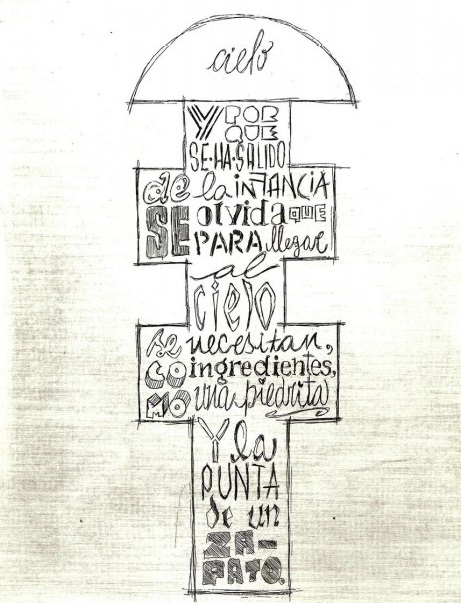 cielo
Y POR
QUE
SE·HA·SALIDO
de la iNFANCIA
SE olvida QUE
PARA llegar
al
CIELO
se necesitan,
CO ingredientes,
MO una piedrita
Y la
PUNTA
de un
ZA-
PATO.